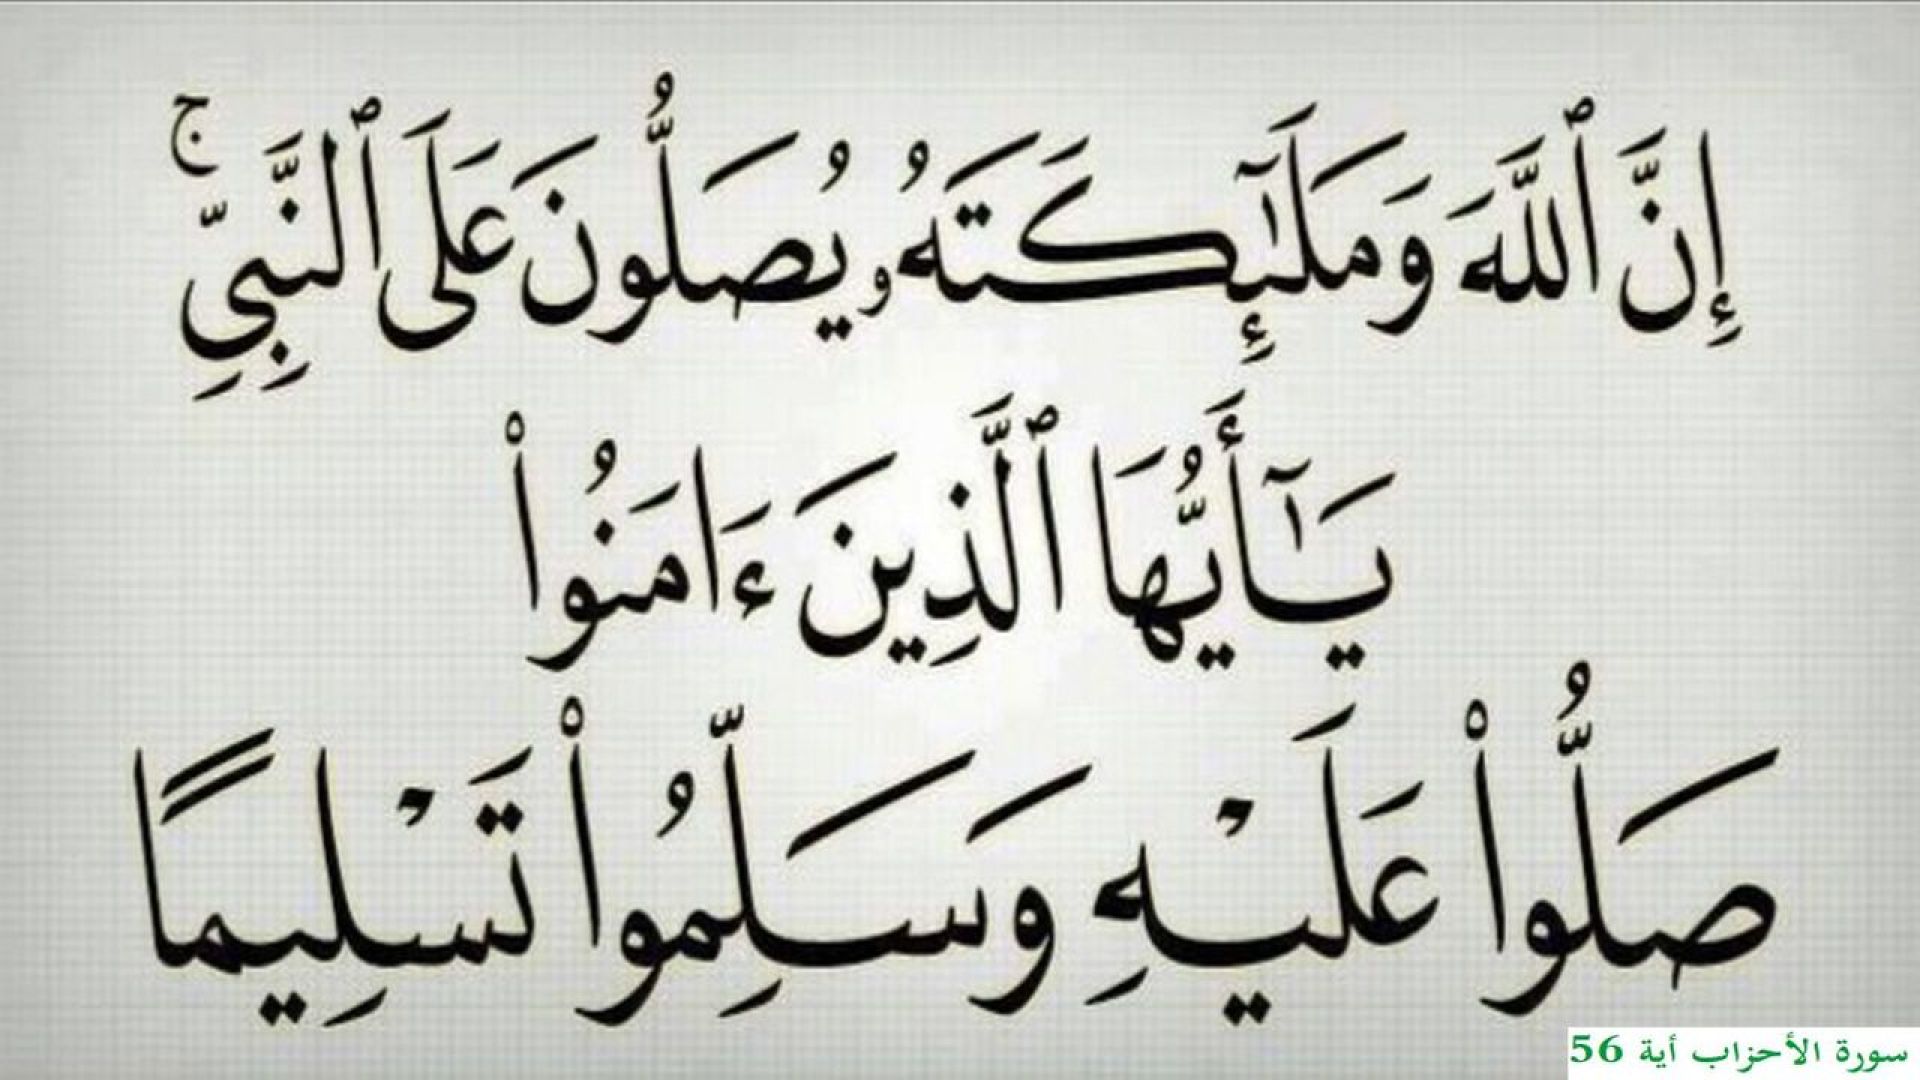 إِنَّ ٱللَّهَ وَمَلَٰٓئِكَتَهُۥ يُصَلُّونَ عَلَى ٱلنَّبِىِّ ۚ
يَٰٓأَيُّهَا ٱلَّذِينَ ءَامَنُوا۟
صَلُّوا۟ عَلَيْهِ وَسَلِّمُوا۟ تَسْلِيمًا
سورة الأحزاب أية 56